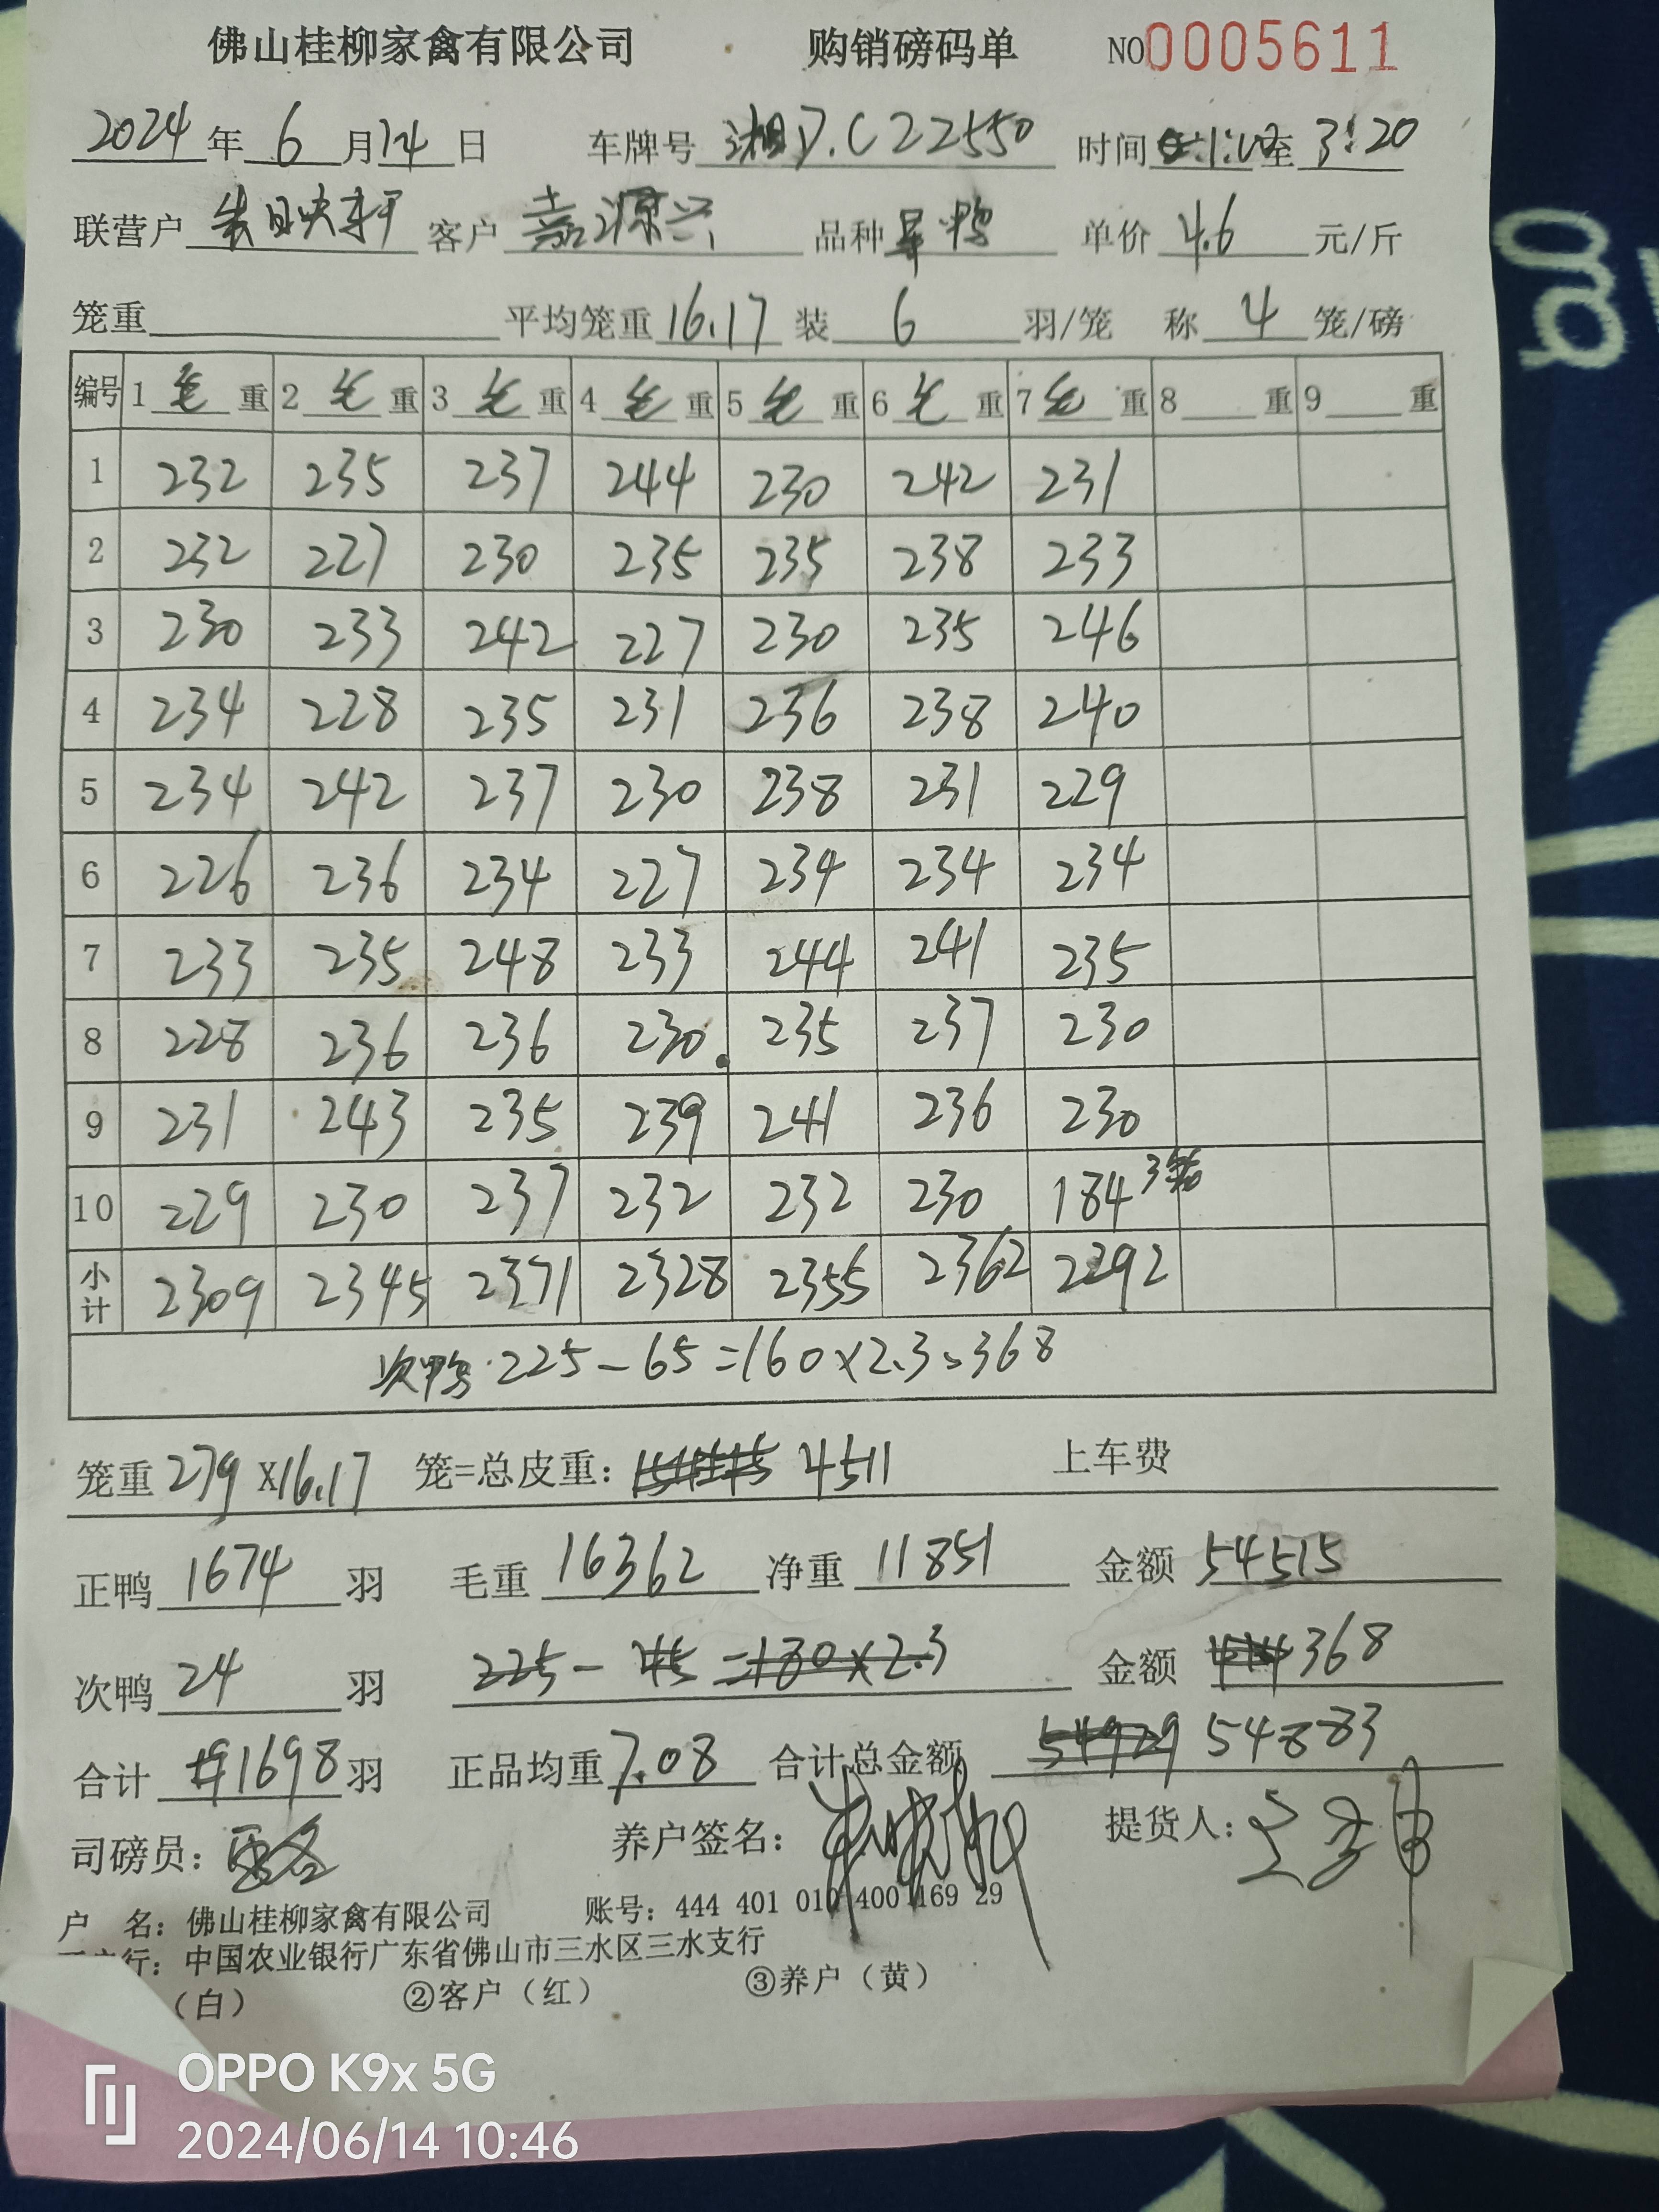 佛山桂柳家禽有限公司 购销磅码单 NO0005611
2024年6月14日 车牌号 湘D.C22550 时间 1:00至3:20
联营户 客户 嘉源兴 品种 鸭 单价 4.6 元/斤
笼重 平均笼重 16.17 装 6 羽/笼 称 4 笼/磅
编号 1 毛 重 2 毛 重 3 毛 重 4 毛 重 5 毛 重 6 毛 重 7 毛 重 8 重 9 重
1 232 235 237 244 230 242 231
2 232 227 230 235 235 238 233
3 230 233 242 227 230 235 246
4 234 228 235 231 236 238 240
5 234 242 237 230 238 231 229
6 226 236 234 227 234 234 234
7 233 235 248 233 244 241 235
8 228 236 236 230 235 237 230
9 231 243 235 239 241 236 230
10 229 230 237 232 232 230 184 3笼
小计 2309 2345 2371 2328 2355 2362 2292
次鸭 225-65=160×2.3=368
笼重 279 X16.17 笼=总皮重: 4511 上车费
正鸭 1674 羽 毛重 16362 净重 11851 金额 54515
次鸭 24 羽 225- 45 =180×2.3 金额 414 368
合计 1698 羽 正品均重 7.08 合计总金额 54929 54883
司磅员: 养户签名: 提货人:
户 名: 佛山桂柳家禽有限公司 账号: 444 401 010 4001169 29
行: 中国农业银行广东省佛山市三水区三水支行
(白) ②客户(红) ③养户(黄)
OPPO K9x 5G
2024/06/14 10:46